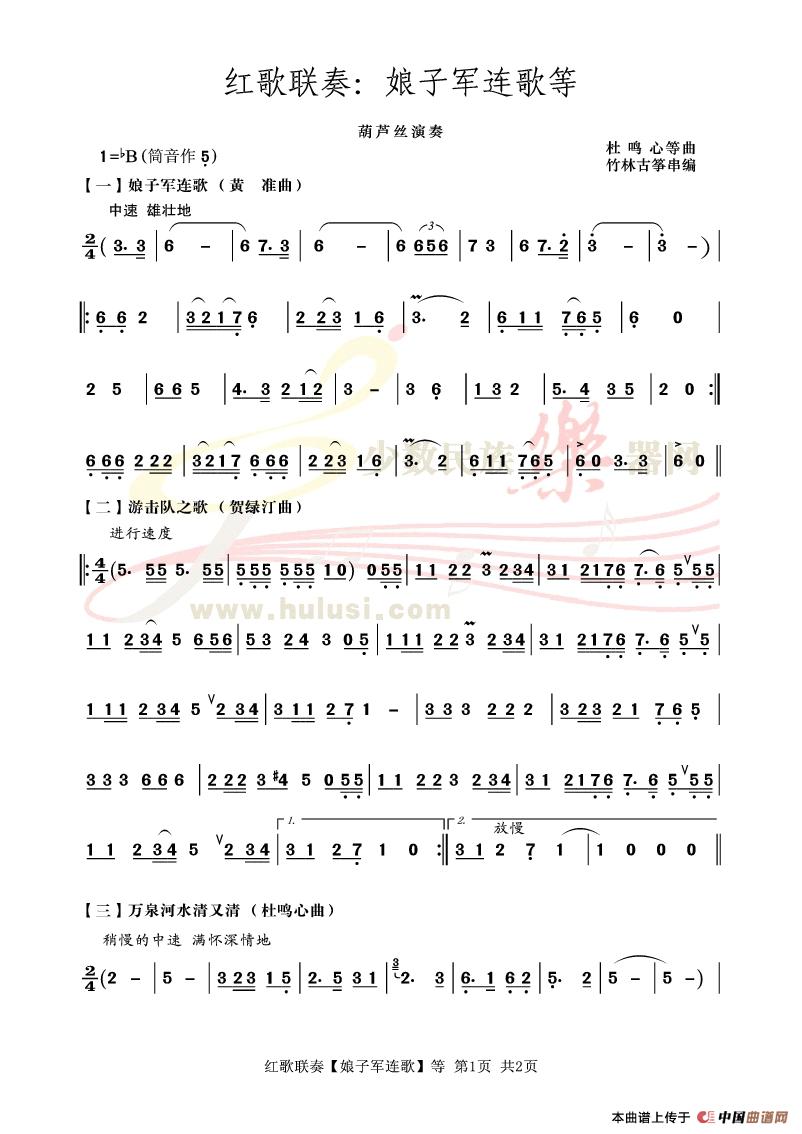 红歌联奏：娘子军连歌等
葫芦丝演奏
1=♭B (筒音作 5̣)
杜 鸣 心等曲
竹林古筝串编
【一】娘子军连歌（黄 准曲）
中速 雄壮地
2/4 ( 3. 3 | 6 – | 6 7. 3 | 6 – | 6 656 | 7 3 | 6 7. 2 | 3 – | 3 – ) |
|: 6 6 2 | 3 2 1 7 6 | 2 2 3 1 6 | 3. 2 | 6 1 1 7 6 5 | 6 0 |
2 5 | 6 6 5 | 4. 3 2 1 2 | 3 – | 3 6 | 1 3 2 | 5. 4 3 5 | 2 0 :|
6 6 6 2 2 2 | 3 2 1 7 6 6 6 | 2 2 3 1 6 | 3. 2 | 6 1 1 7 6 5 | 6 0 3. 3 | 6 0 ||
少数民族樂器网
【二】游击队之歌（贺绿汀曲）
进行速度
|: 4/4 (5. 5 5 5. 5 5 | 5 5 5 5 5 5 1 0 ) 0 5 5 | 1 1 2 2 3 2 3 4 | 3 1 2 1 7 6 7. 6 5 ∨ 5 5 |
www.hulusi.com
1 1 2 3 4 5 6 5 6 | 5 3 2 4 3 0 5 | 1 1 1 2 2 3 2 3 4 | 3 1 2 1 7 6 7. 6 5 ∨ 5 |
1 1 1 2 3 4 5 ∨ 2 3 4 | 3 1 1 2 7 1 – | 3 3 3 2 2 2 | 3 2 3 2 1 7 6 5 |
3 3 3 6 6 6 | 2 2 2 3 #4 5 0 5 5 | 1 1 2 2 3 2 3 4 | 3 1 2 1 7 6 7. 6 5 ∨ 5 5 |
1. 2. 放慢
1 1 2 3 4 5 ∨ 2 3 4 | 3 1 2 7 1 0 :| 3 1 2 7 1 | 1 0 0 0 ||
【三】万泉河水清又清（杜鸣心曲）
稍慢的中速 满怀深情地
2/4 ( 2 – | 5 – | 3 2 3 1 5 | 2. 5 3 1 | 3 2. 3 | 6. 1 6 2 | 5. 2 | 5 – | 5 – ) |
红歌联奏【娘子军连歌】等 第1页 共2页
本曲谱上传于 中国曲谱网